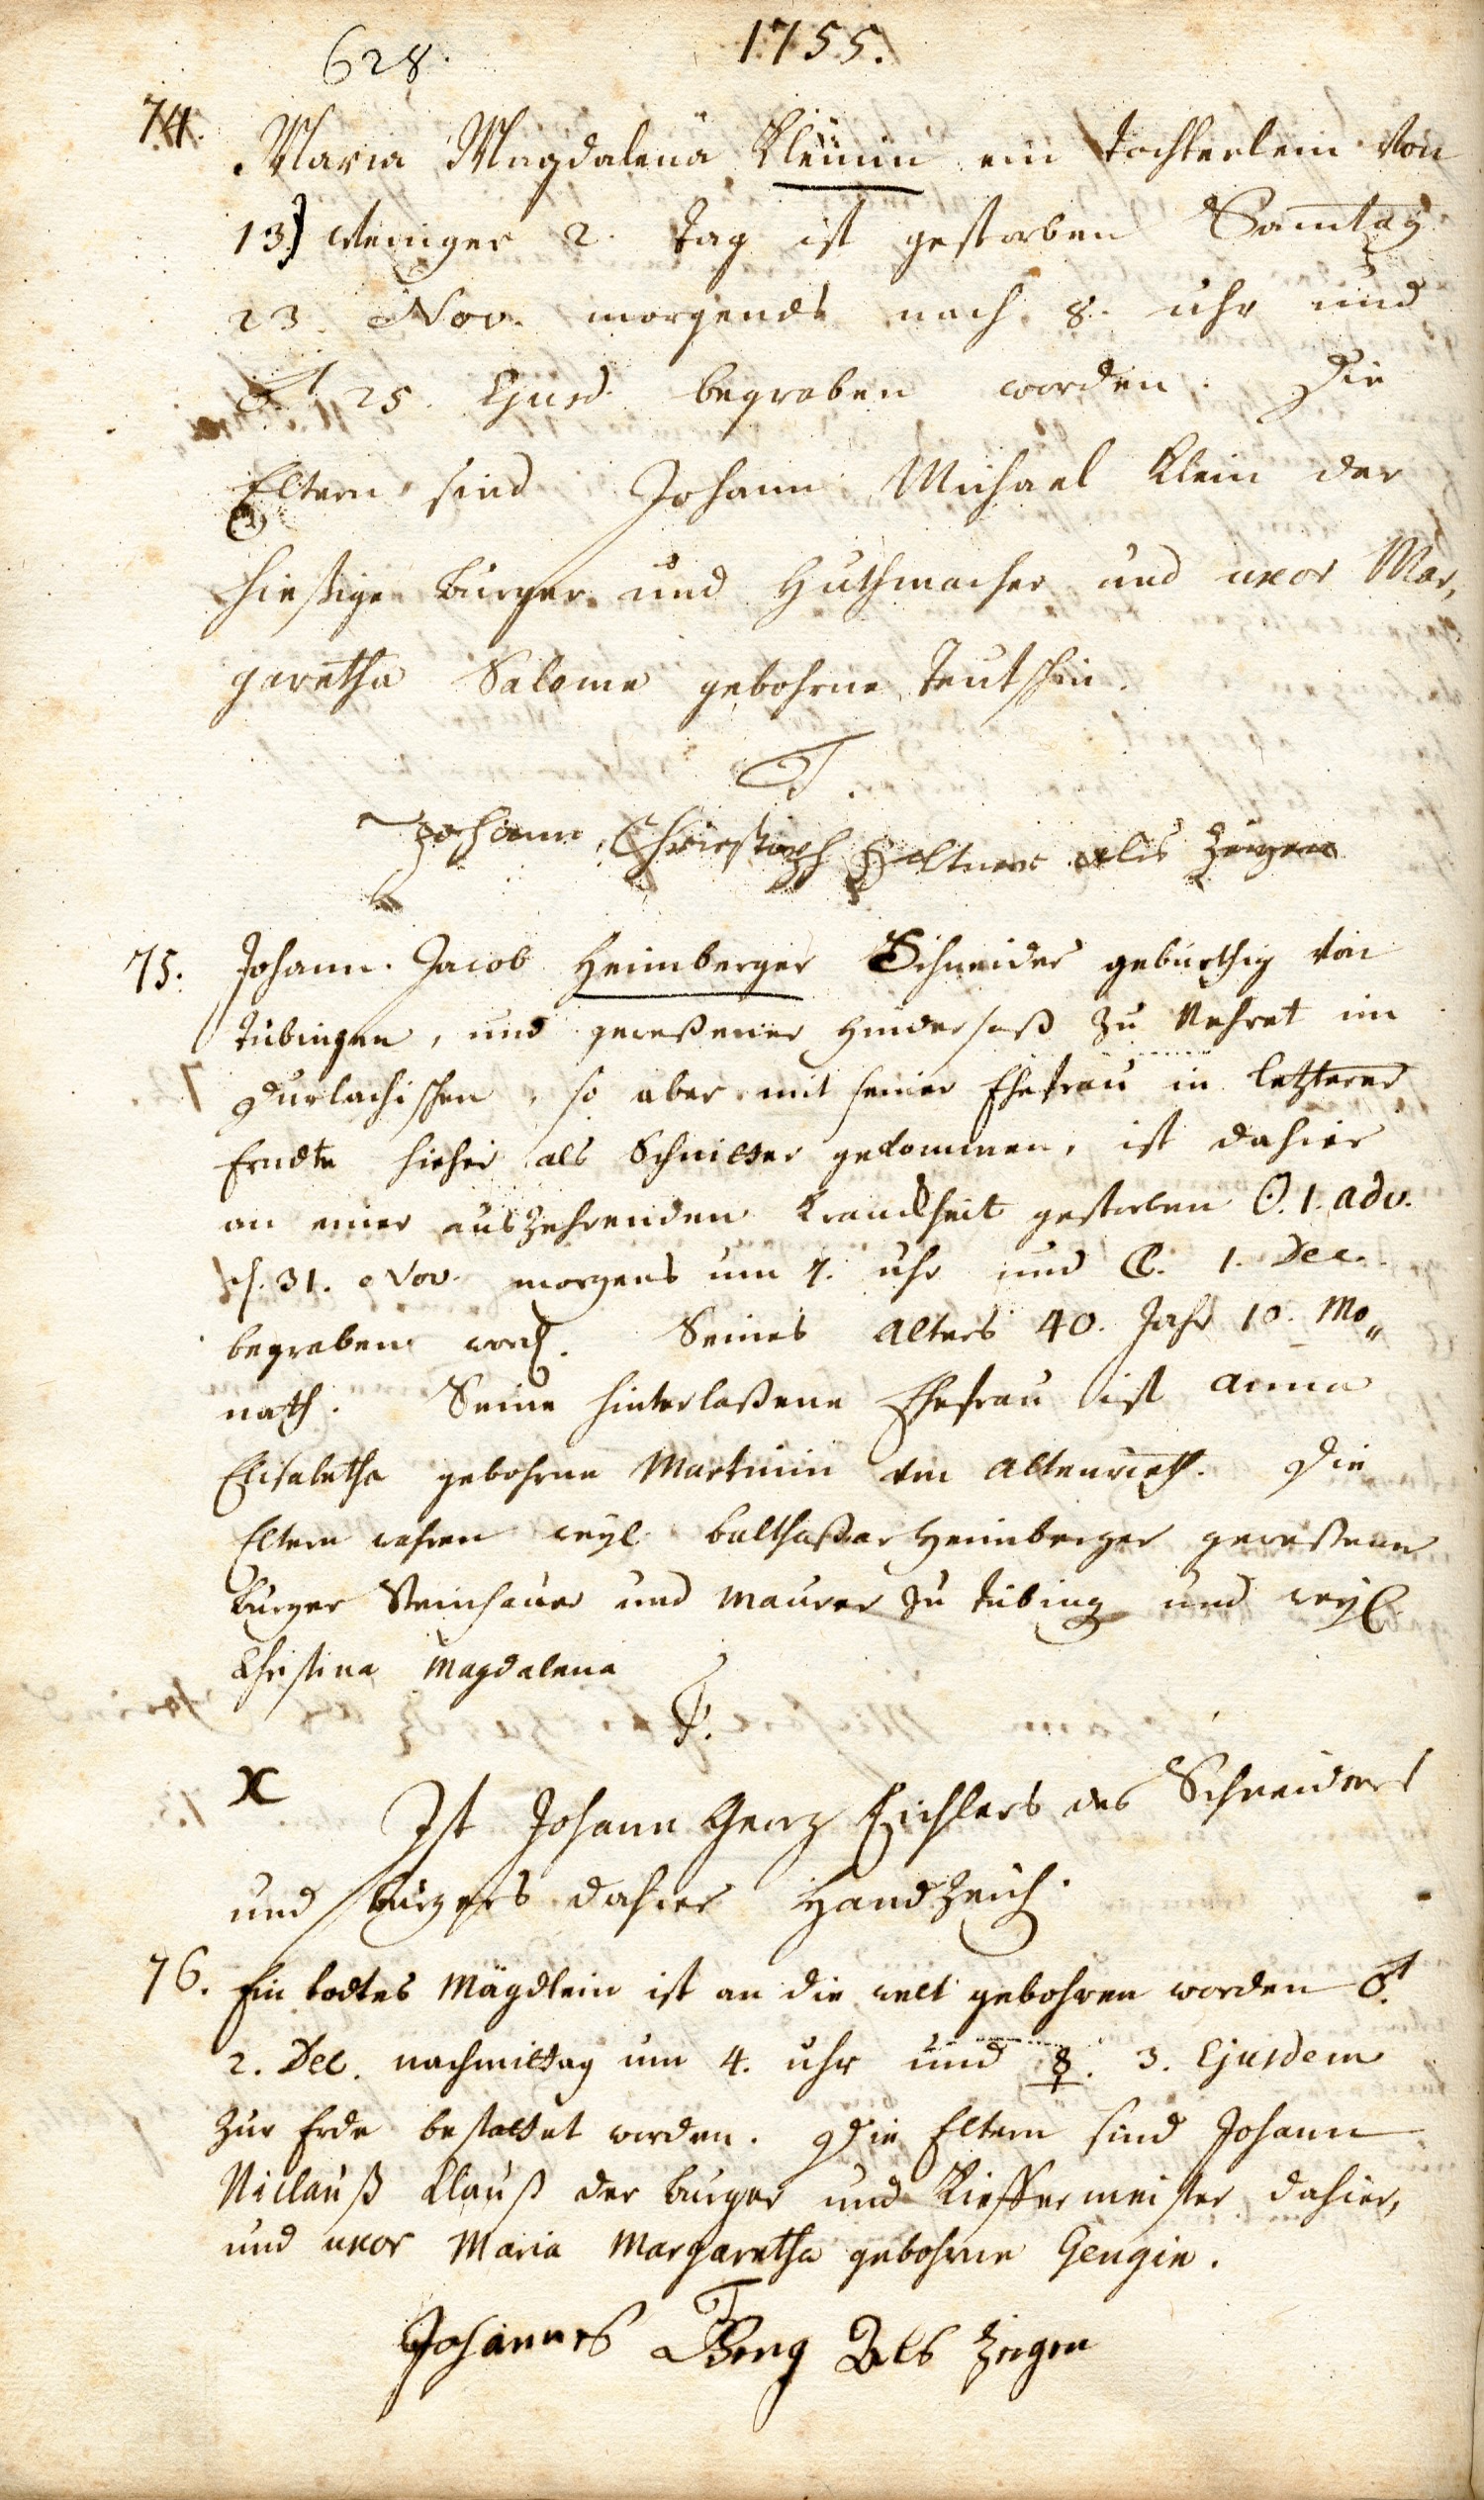 628.
1755.
74. Maria Magdalena Kleinin ein Töchterlein von
13] weniger 2. Tag ist gestorben Samstag
23. Nov. morgends nach 8. uhr und
♂ 25. Ejusd. begraben worden. Die
Eltern sind Johann Michael Klein der
hiesige Burger und Huthmacher und uxor Mar,
garetha Salome gebohrne Teutschin.
T.
Johann Christoph als Zeugen
75. Johann Jacob Heimberger Schneider gebürthig von
Tübingen, und geweßener Hindersaß zu in
Durlachischen, so aber mit seiner Ehefrau in letzterer
Erndte hieher als Schnitter gekommen, ist dahier
an einer auszehrenden Kranckheit gestorben ☉. 1. adv.
31. Nov. morgens um 7. uhr und ☾. 1. Dec.
begraben word. Seines Alters 40. Jahr 10. Mo„
nath. Seine hinterlaßene Ehefrau ist Anna
Elisabetha gebohrne Martinin von Altenrieth. Die
Eltern wahren weyl. Balthaßar Heimberger geweßener
Burger Steinhauer und Maurer zu Tübing und weyl.
Christina Magdalena
T.
X
Ist Johann Georg Eichlers des Schneiders
und burgers dahier Handzeich.
76. Ein todtes Mägdlein ist an die welt gebohren worden ♂.
2. Dec. nachmittag um 4. uhr und ☿. 3. Ejusdem
zur Erde bestattet worden. Die Eltern sind Johann
Niclauß Clauß der burger und Kieffermeister dahier,
und uxor Maria Margaretha gebohrne Gengin.
T
Johannes Berg Als Zeigen